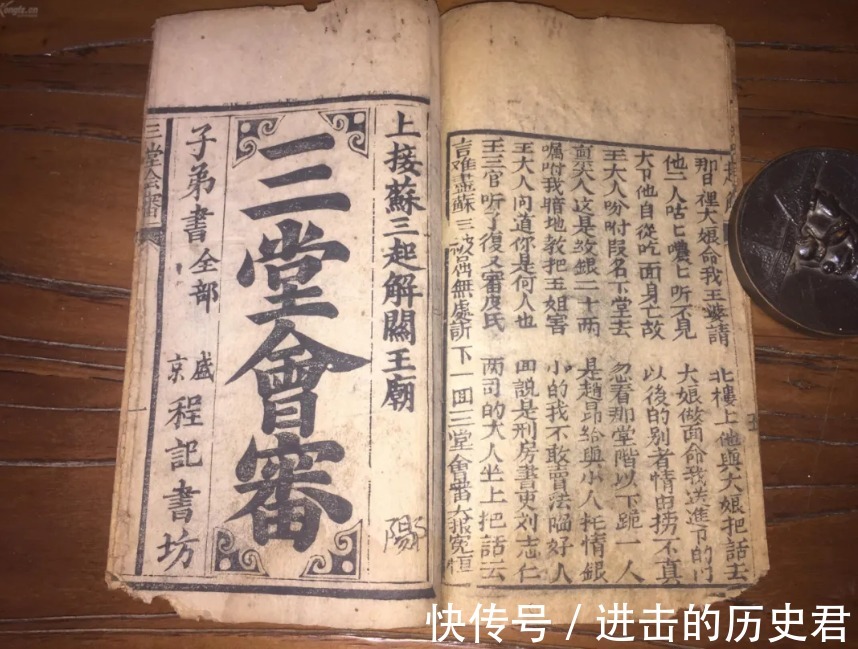 那日裡大娘命我王婆請 北樓上他與大娘把話云
他二人咕匕噥匕听不見 大娘做面命我送進下的门
他自從吃面身亡故 以後的别者情由撈不真
王大人吩咐叚名下堂去 忽看那堂階以下跪一人
人这是紋銀二十两 是趙昂給與小人托情銀
嘱咐我暗地教把玉姐害 小的我不敢賣法陷好人
王大人问道你是何人也 囬說是刑房書吏刘志仁
王三官听了復又審皮氏 两司的大人坐上把話云
言难盡蘇三被屈無處訴 下一囬三堂會審大報冤恒
上接蘇三起解關王廟
陽
三堂會審
子弟書全部
盛京 程記書坊
三堂会審
快传号 / 进击的历史君